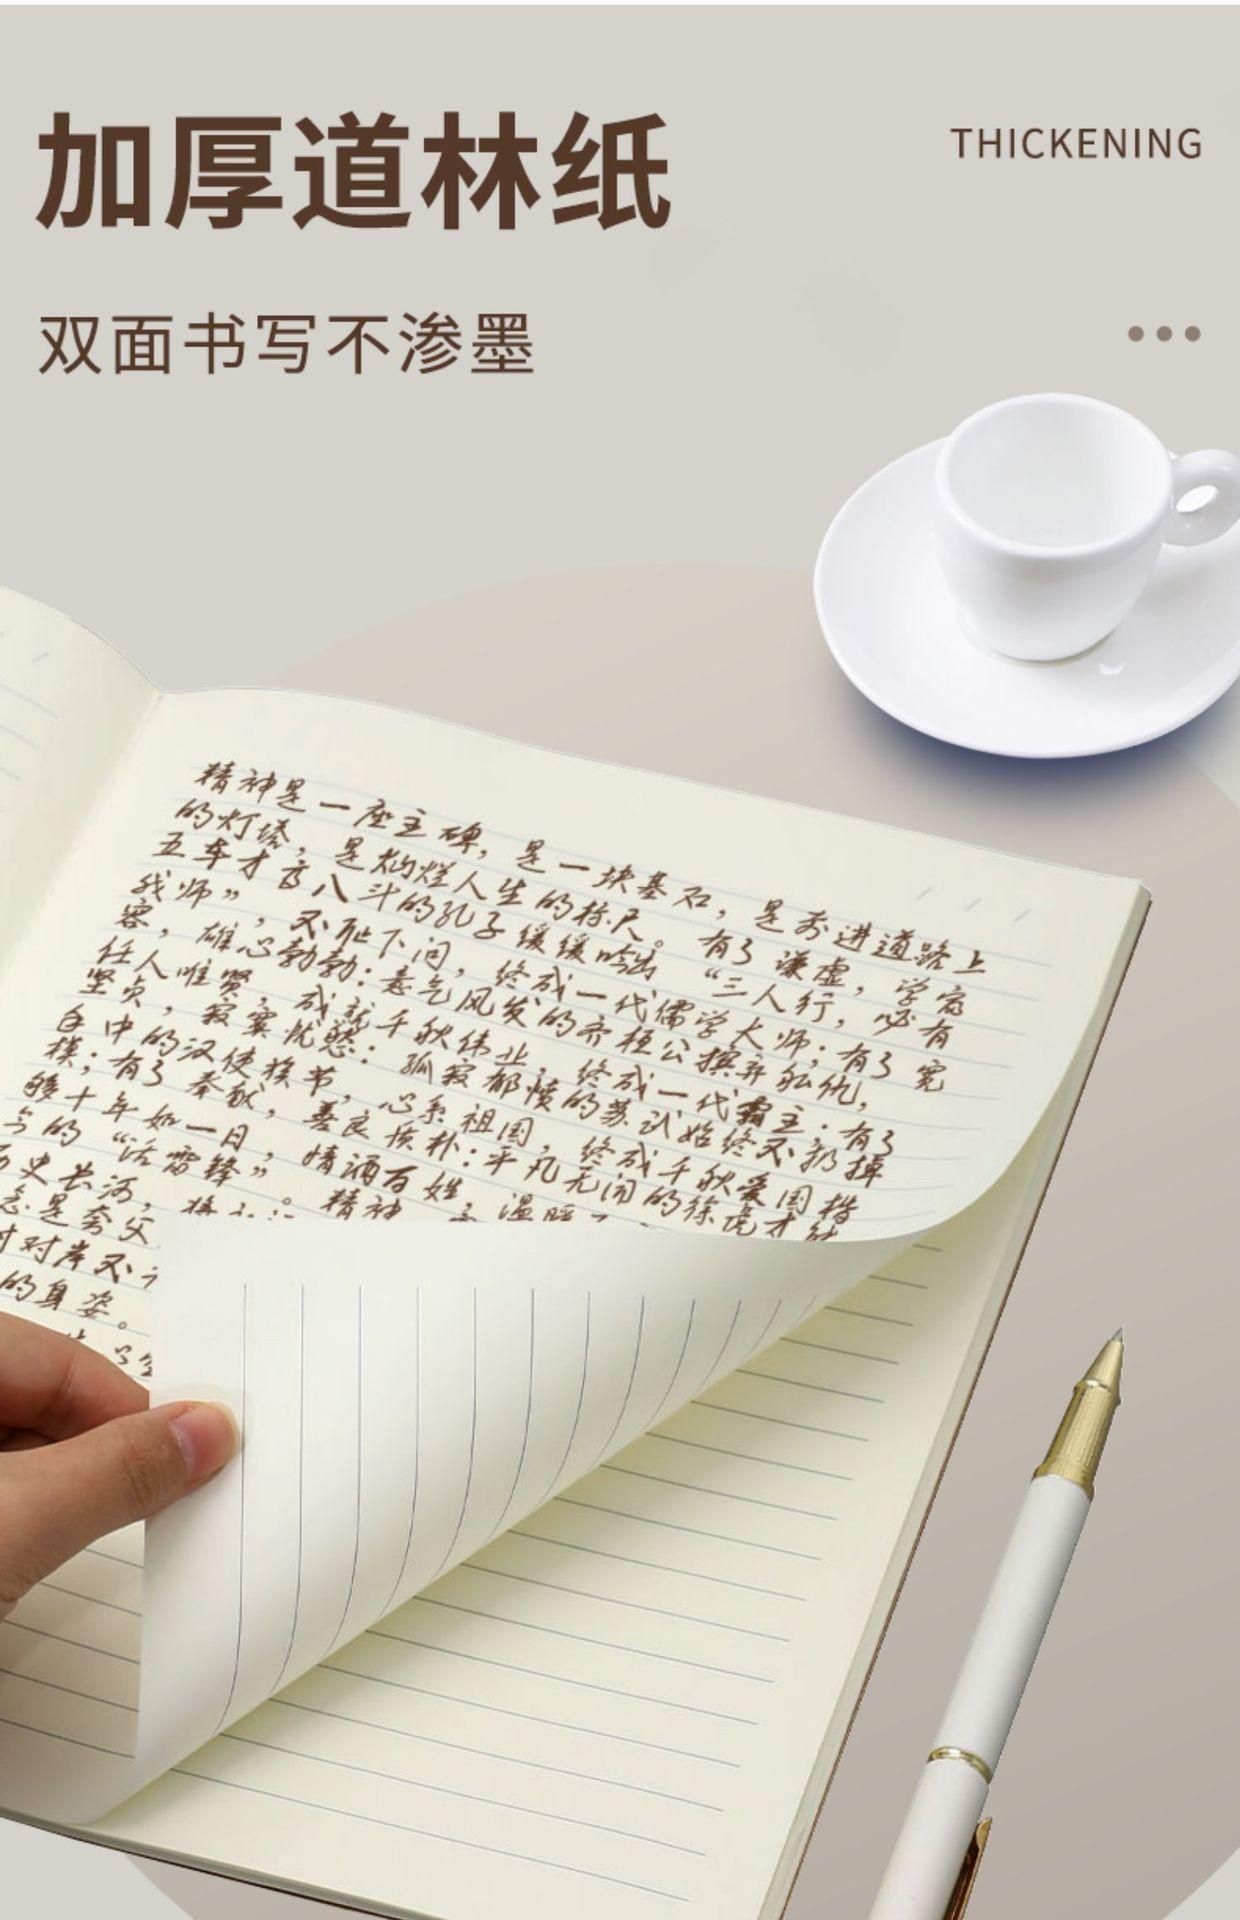 加厚道林纸
THICKENING
双面书写不渗墨
精神是一座主碑，是一块基石，是前进道路上
的灯塔，是灿烂人生的标尺。有了谦虚，学富
五车才高八斗的孔子缓缓吟出“三人行，必有
我师”，不耻下问，终成一代儒学大师；有了宽
容，雄心勃勃；意气风发的齐桓公摒弃私仇，
任人唯贤，成就千秋伟业，终成一代霸主．有了
坚贞，寂寞忧愁；孤寂都愤的苏武始终不扔掉
手中的汉使族节，心系祖国，终成千秋爱国楷
模；有了奉献，善良质朴；平凡无闻的徐虎才能
够十年如一日，情洒百姓，温暖
今的“活雷锋”。精神
历史长河，
总是夸父
对岸又
的身姿。